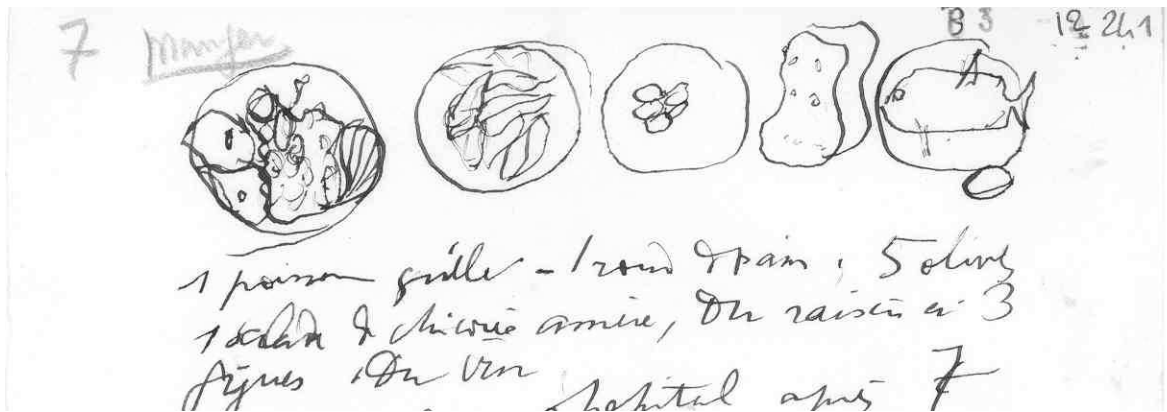 7 Manger B 3 12 241
1 poisson grillé - 1 rond de pain, 5 olives
1 salade de chicorée amère, Du raisin et 3
figues. Du vin
hopital après 7